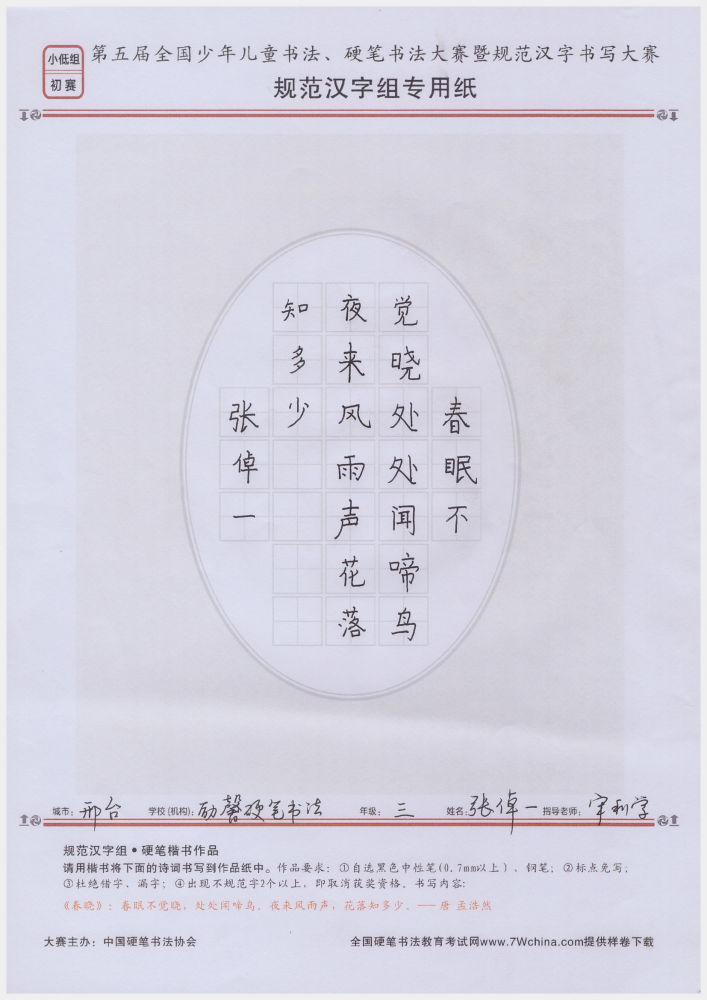 小低组
初赛
第五届全国少年儿童书法、硬笔书法大赛暨规范汉字书写大赛
规范汉字组专用纸
春眠不
觉晓处处闻啼鸟
夜来风雨声花落
知多少
张倬一
城市：邢台 学校(机构)：励馨硬笔书法 年级：三 姓名：张倬一 指导老师：宇利学
规范汉字组•硬笔楷书作品
请用楷书将下面的诗词书写到作品纸中。作品要求：①自选黑色中性笔(0.7mm以上)、钢笔；②标点免写；
③杜绝错字、漏字；④出现不规范字2个以上，即取消获奖资格。书写内容：
《春晓》：春眠不觉晓，处处闻啼鸟。夜来风雨声，花落知多少。——唐 孟浩然
大赛主办：中国硬笔书法协会 全国硬笔书法教育考试网www.7Wchina.com提供样卷下载